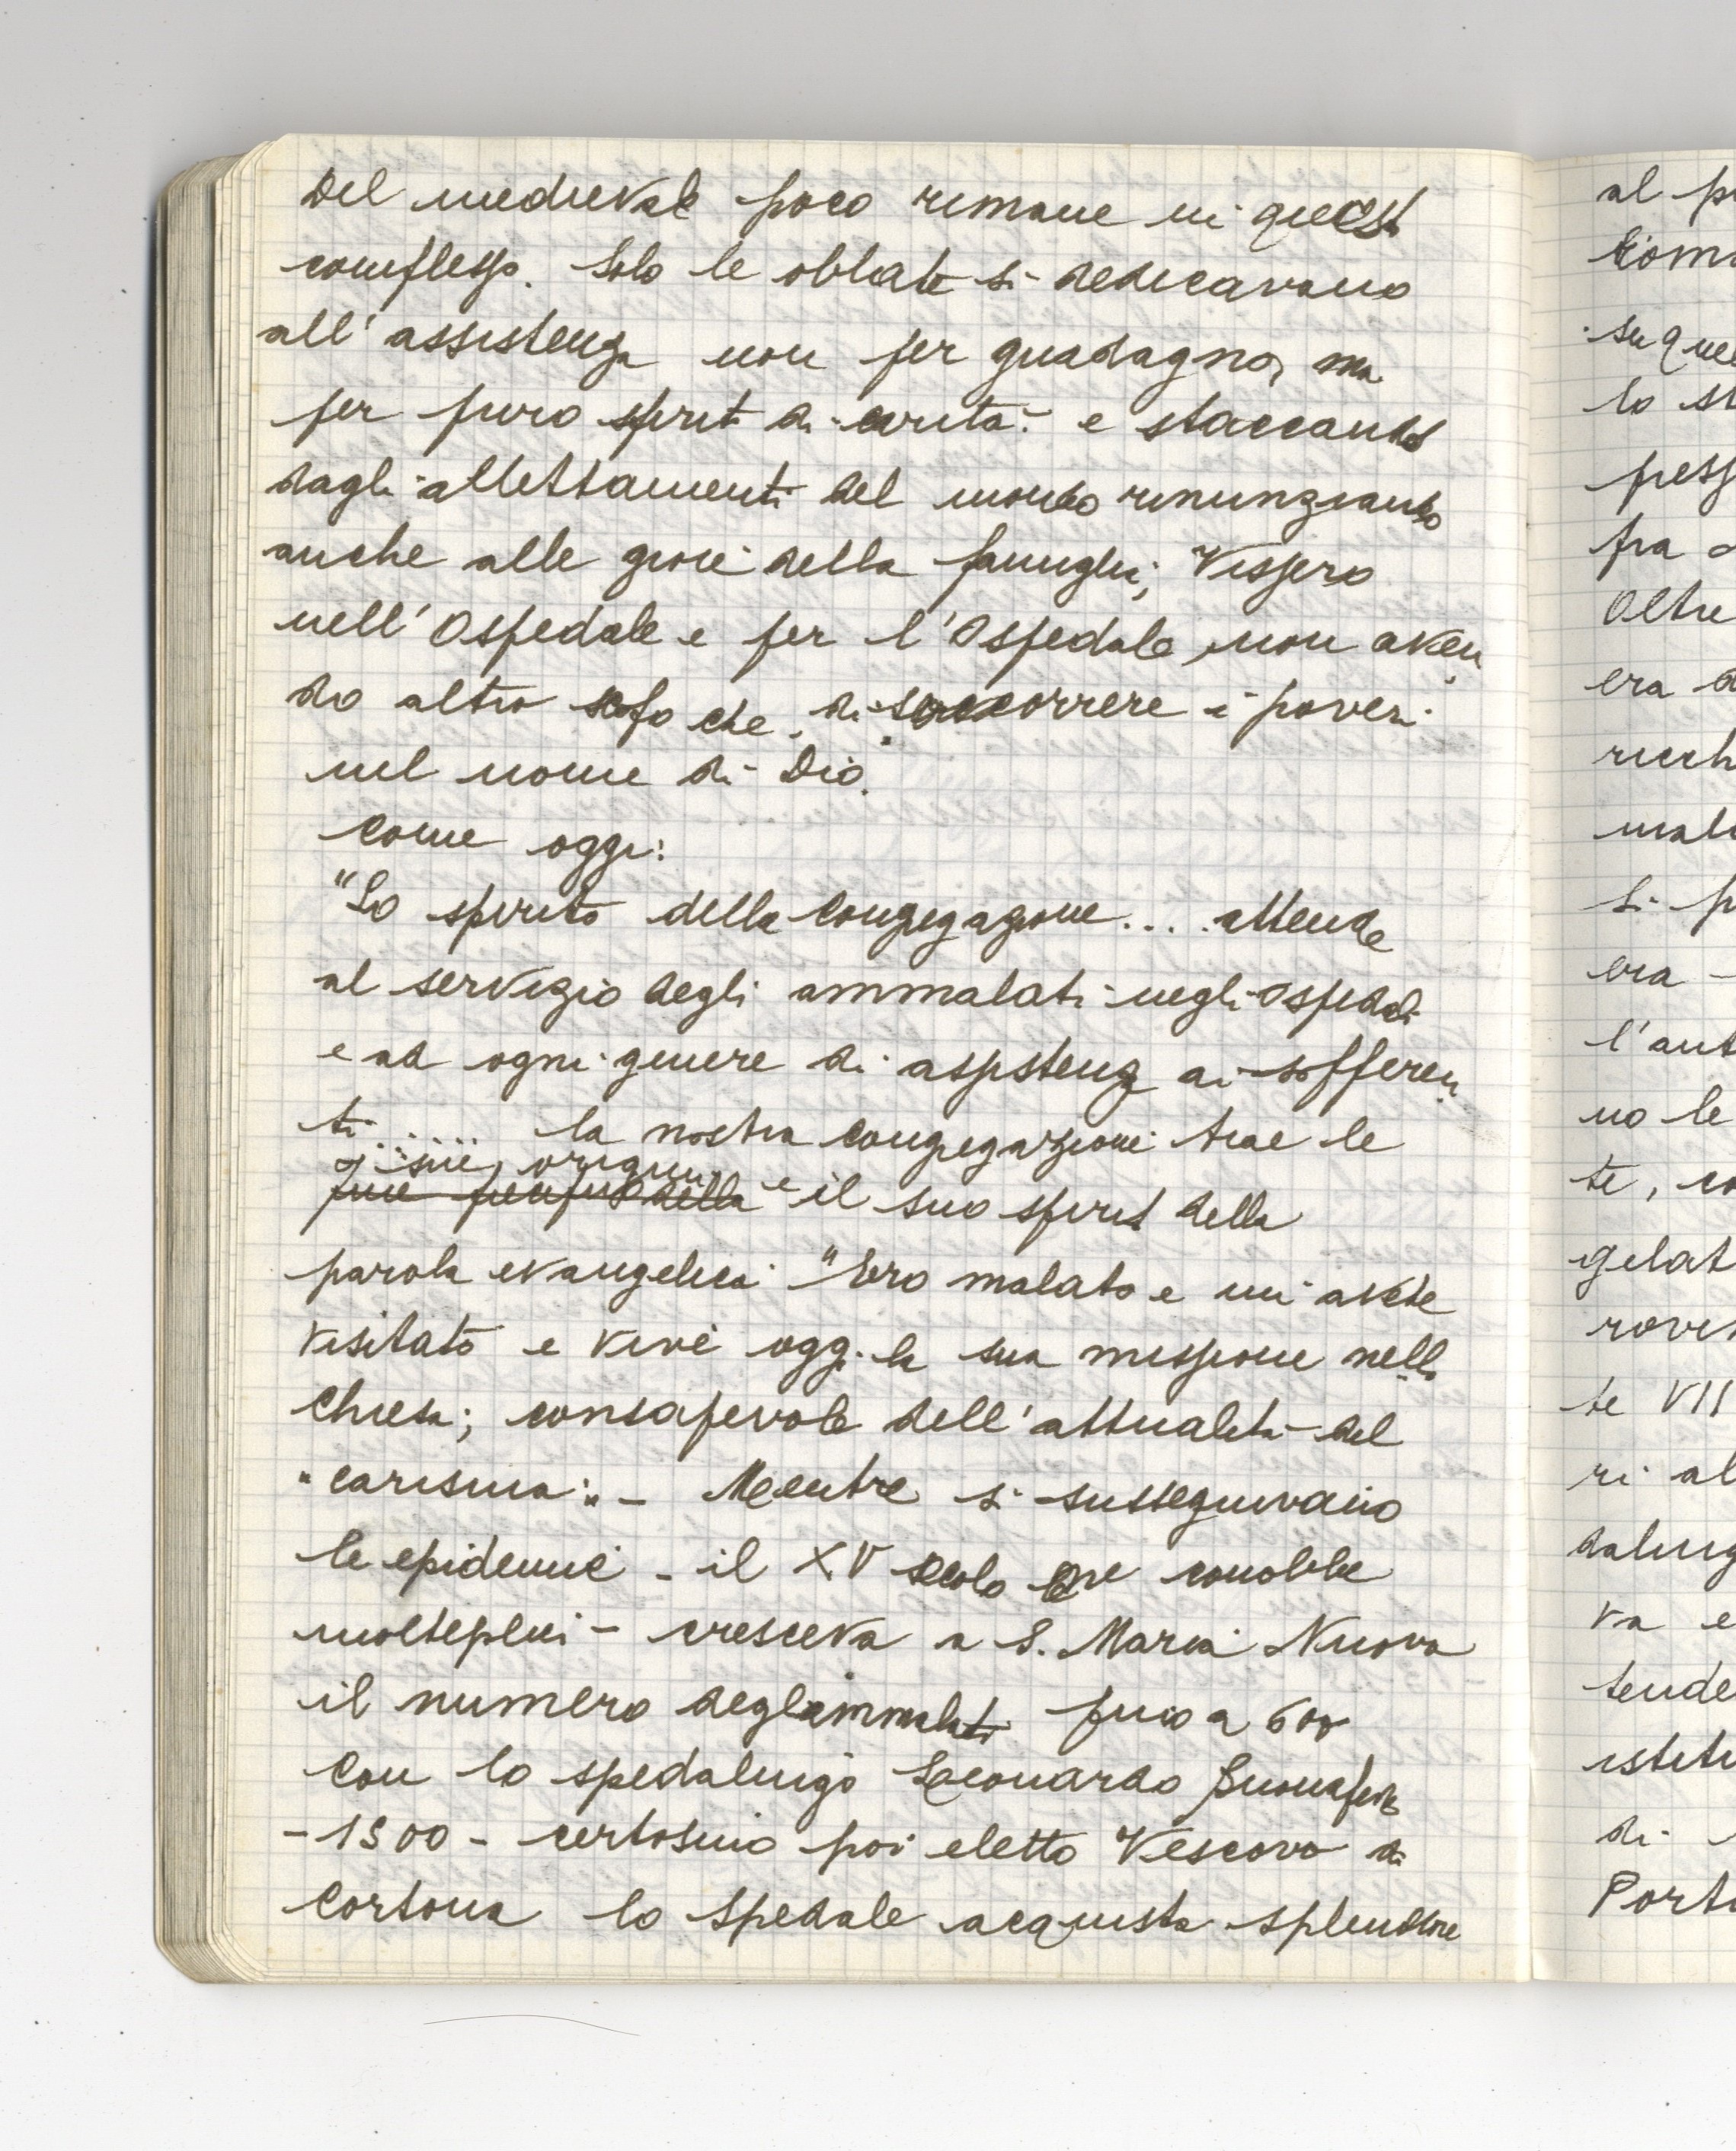 Del medievale poco rimane in quest
complesso. Solo le oblate si dedicavano
all'assistenza non per guadagno, ma
per puro spirito di carità e staccando
dagli allettamenti del mondo rinunziando
anche alle gioie della famiglia; Vissero
nell'Ospedale e per l'Ospedale, non aven
do altro scopo che di soccorrere i poveri
nel nome di Dio.
Come oggi:
"Lo spirito della Congregazione.... attende
al servizio degli ammalati negli Ospedali
e ad ogni genere di assistenza ai sofferen
ti..... la nostra congregazione trae le
sue origini
e il suo spirito della
parola evangelica "Ero malato e mi avete
visitato e vive oggi la sua missione nella
Chiesa; consapevole dell'attualità del
"carisma". - Mentre si susseguivano
le epidemie - il XV secolo ne conobbe
molteplici - cresceva a S. Maria Nuova
il numero degli ammalati fino a 600
Con lo spedalingo Leonardo Buonafede
- 1500 - certosino poi eletto Vescovo di
Cortona lo Spedale acquista splendore
al
su que
lo
fra
Oltre
era
si
era
l'aut
no le
te, co
gelat
te VII
ri al
va e
di
Port